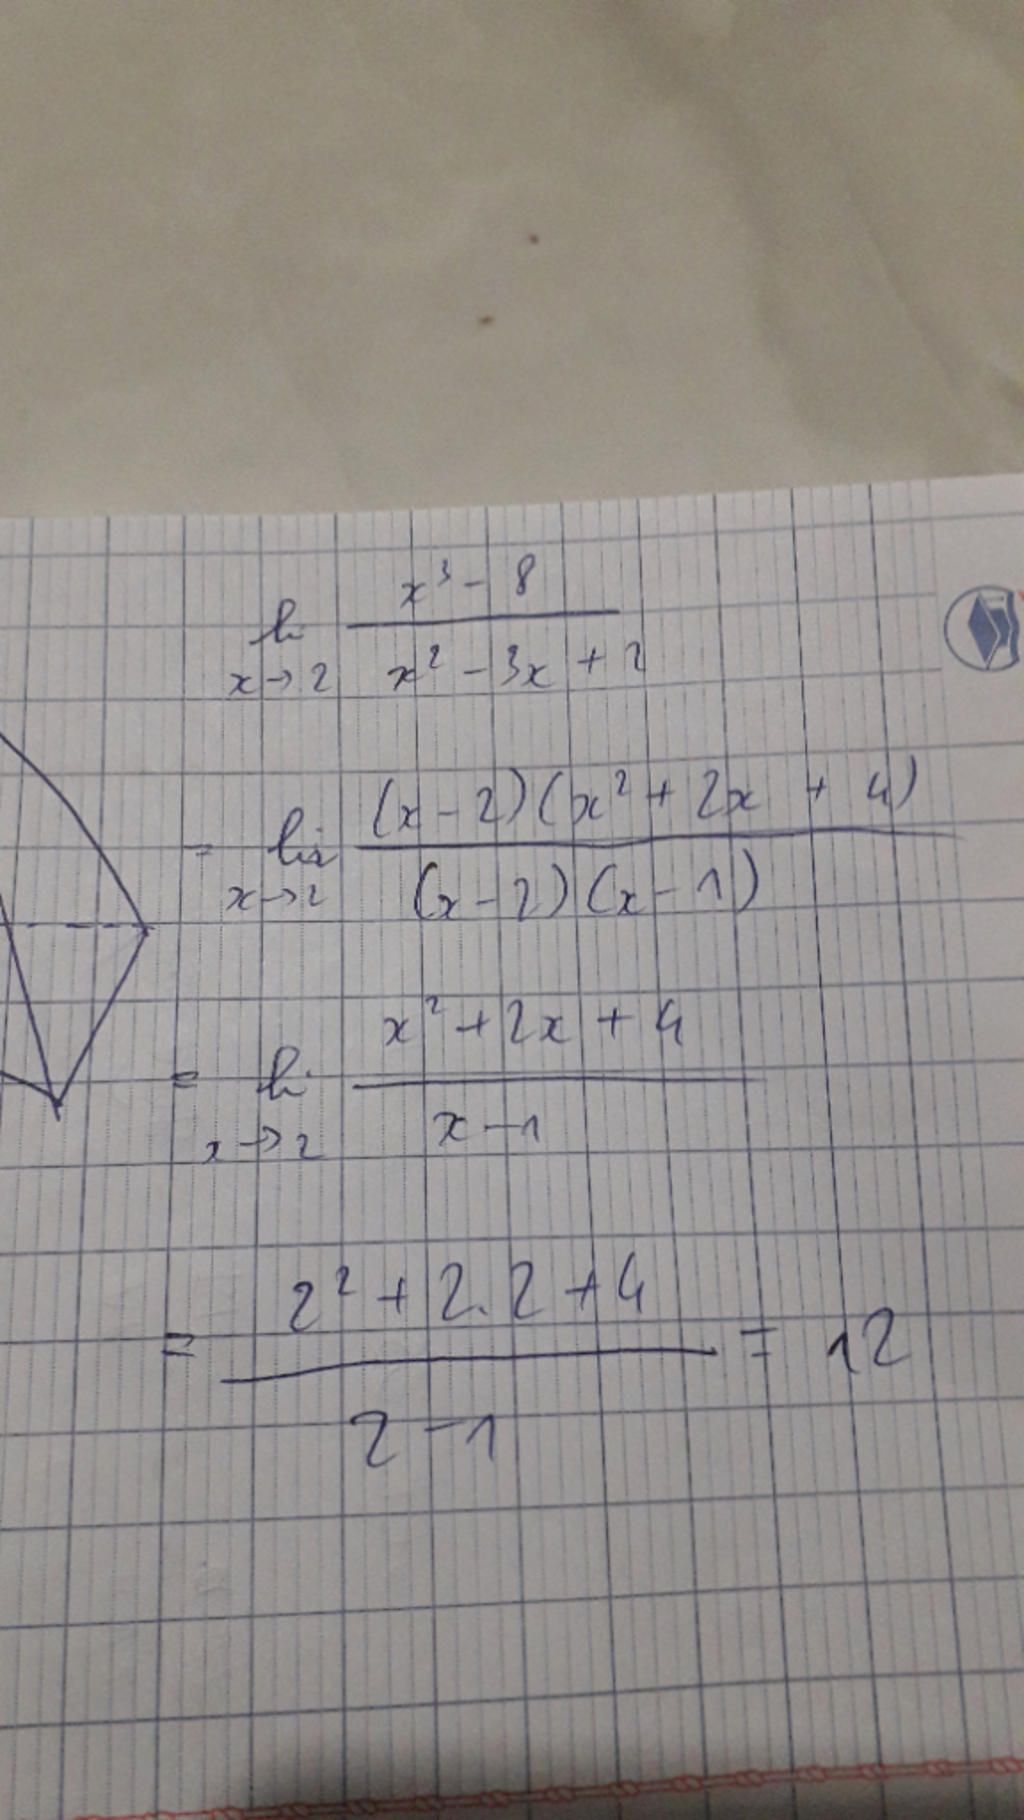 lim x→2 (x³ - 8)/(x² - 3x + 2)
= lim x→2 ((x - 2)(x² + 2x + 4))/((x - 2)(x - 1))
= lim x→2 (x² + 2x + 4)/(x - 1)
= (2² + 2.2 + 4)/(2 - 1) = 12